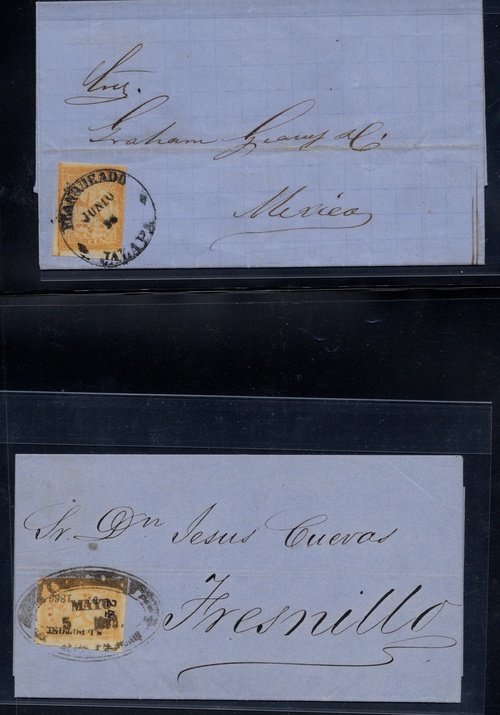 Sres.
Graham Geaves & Cª
Mexico
FRANQUEADO
JUNIO
JALAPA
Sr. Dn Jesus Cuevas
Fresnillo
MAYO
5
S.L.POTOSI